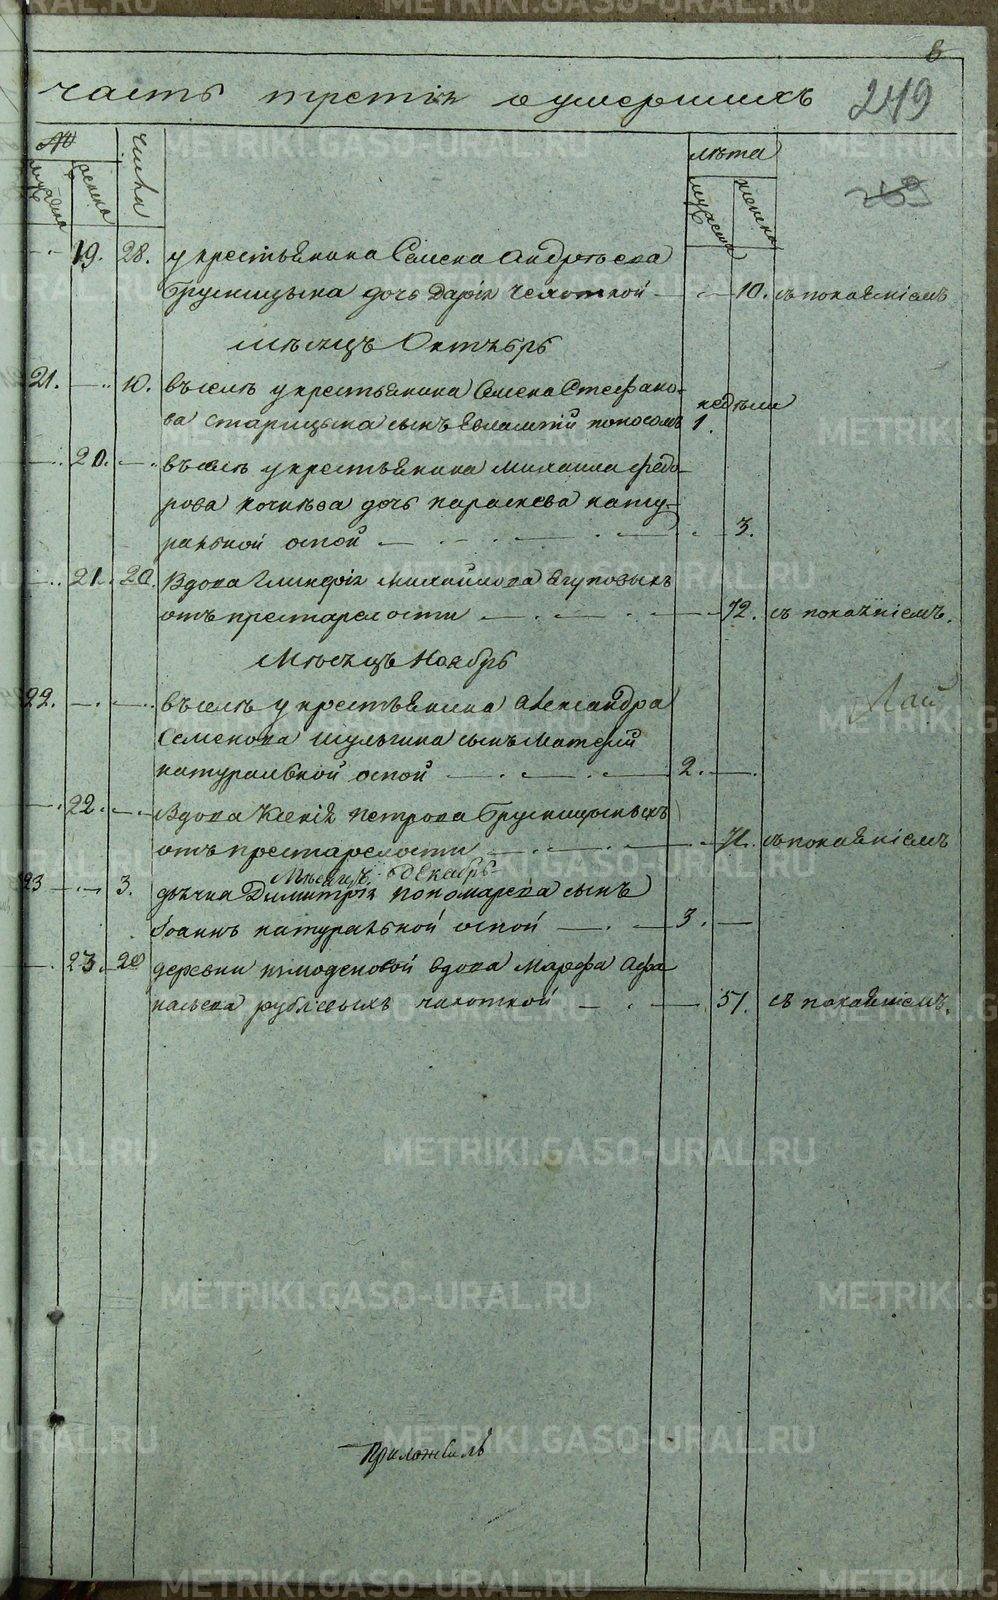 8
часть третія о умершихъ
249
№
числа
лѣта
мужеска
женска
мужеска
женска
19. 28. у крестьянина Семена Андреева
Брусницына дочь Дарія чехоткой — 10. съ покаяніемъ
Мѣсяцъ Октябрь
21. 10. въ селѣ у крестьянина Семена Стефано-
ва Старицына сынъ Евлампій поносомъ недѣли 1.
20. въ селѣ у крестьянина Михаила Федо-
рова Кочнева дочь Параскева нату-
ральной оспой — 3.
21. 20. Вдова Гликерія Михайлова Ягуповыхъ
отъ престарелости — 72. съ покаяніемъ.
Мѣсяцъ Ноябрь
22. въ селѣ у крестьянина Александра
Семенова Шулгина сынъ Матѳей
натуральной оспой — 2.
22. Вдова Ксенія Петрова Брусницыныхъ
отъ престарелости — 71. съ покаяніемъ
Мѣсяцъ Декабрь
23 3. дьячка Димитрія Пономарева сынъ
Іоаннъ натуральной оспой — 3.
23. 28 деревни вдова Марфа Афа
насьева Рублевыхъ чахоткой — 51. съ покаяніемъ.
Приложилъ
METRIKI.GASO-URAL.RU